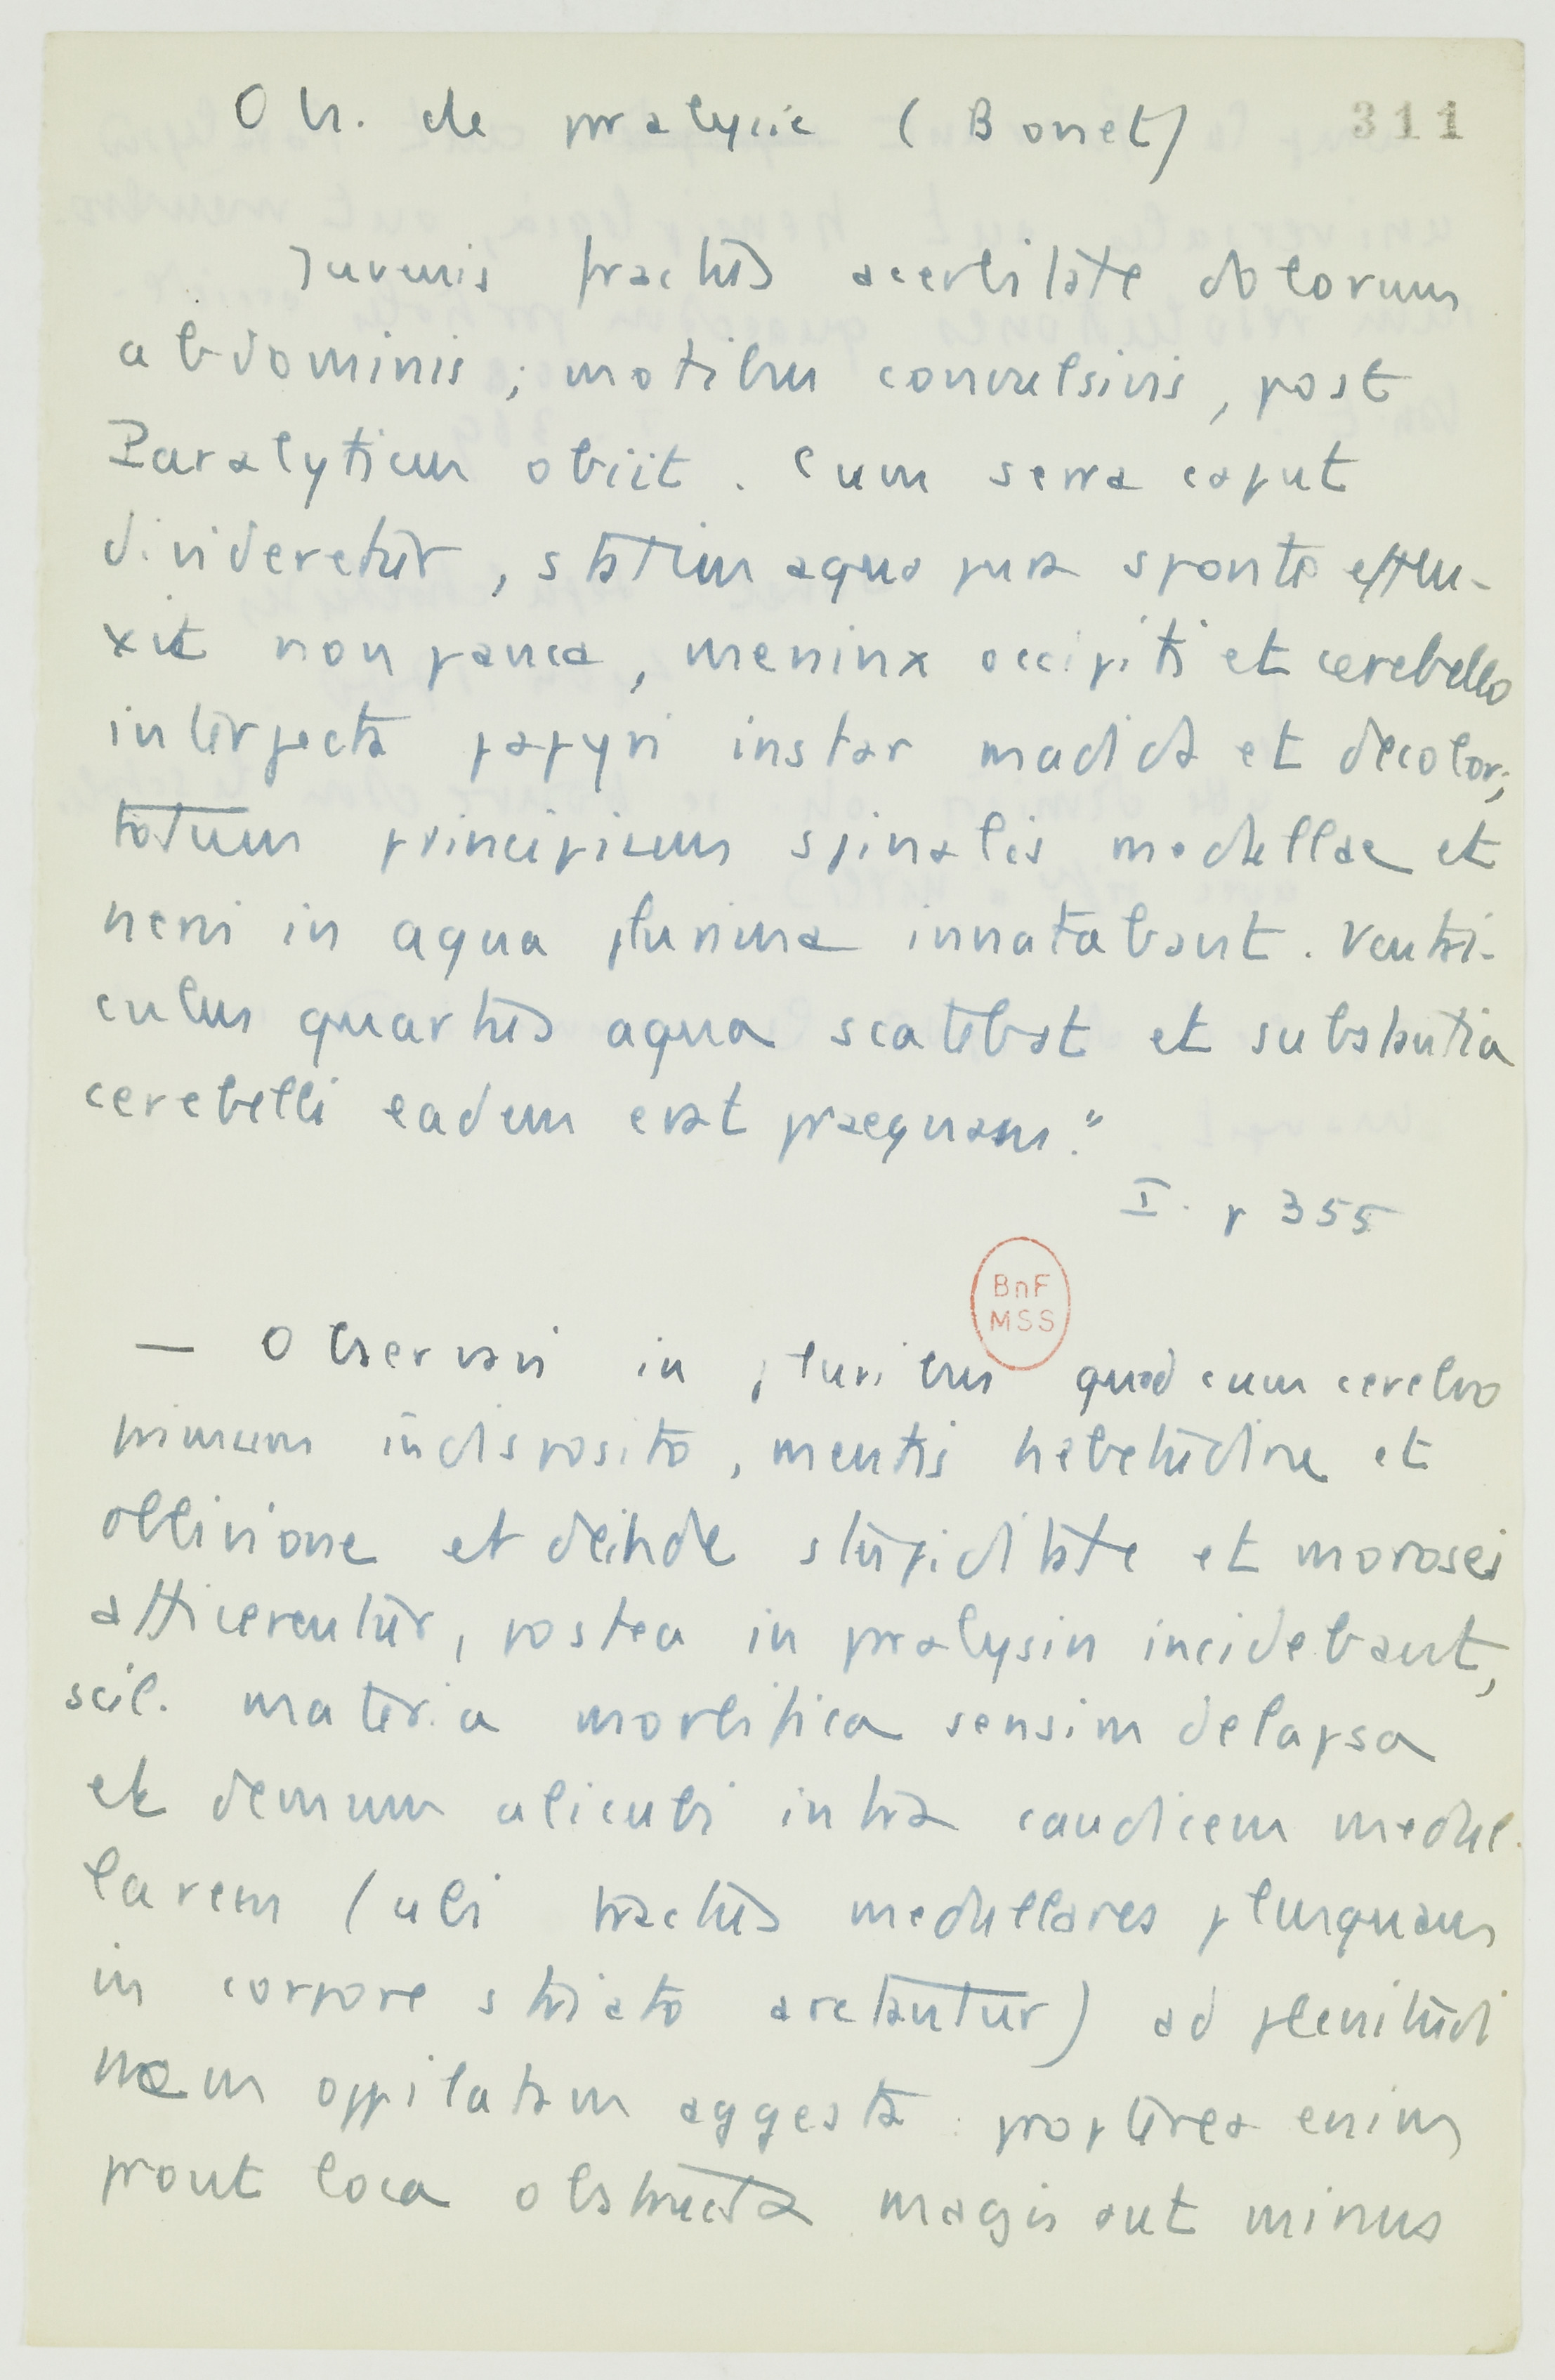 Obs. de paralysie (Bonet) 311
Juvenis fractus acerbitate dolorum
abdominis, motibus convulsivis, post
Paralyticum obiit. Cum serra caput
divideretur, statim aqua pura sponte efflu-
xit non pauca, meninx occipiti et cerebello
interjecta papyri instar madida et decolor;
totum principium spinalis medullae et
nervi in aqua plurima innatabant. Ventri-
culus quartus aqua scatebat et substantia
cerebelli eadem erat praegnans."
I. p 355
BnF
MSS
— Observavi in pluribus quod cum cerebro
primum indisposito, mentis hebetudine et
oblivione et deinde stupiditate et morosei
afficerentur, postea in paralysin incidebant,
scil. materia morbifica sensim delapsa
et demum alicubi intra caudicem medul-
larem (ubi tractus medullares plusquam
in corpore striato arctantur) ad plenitudi
nem oppilatam aggesta : propterea enim
prout loca obstructa magis aut minus